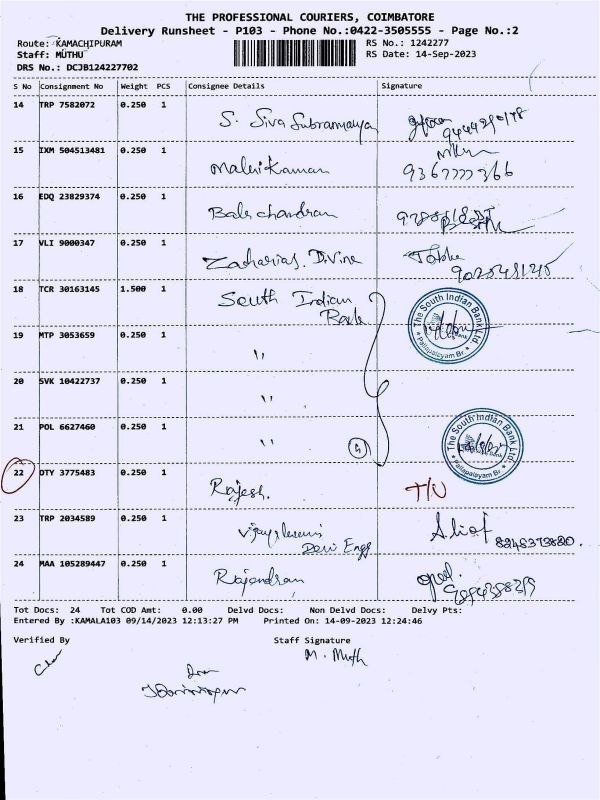 THE PROFESSIONAL COURIERS, COIMBATORE
Delivery Runsheet - P103 - Phone No.:0422-3505555 - Page No.:2
Route: KAMACHIPURAM RS No.: 1242277
Staff: MUTHU RS Date: 14-Sep-2023
DRS No.: DCJB124227702
S No Consignment No Weight PCS Consignee Details Signature
14 TRP 7582072 0.250 1 S. Siva Subramanya
15 IXM 504513481 0.250 1 9367777366
16 EDQ 23829374 0.250 1 Bale chandran
17 VLI 9000347 0.250 1 Zacharias. Divine
18 TCR 30163145 1.500 1 South Indian Bank The South Indian Bank Ltd. Pallapalayam Br.
19 MTP 3053659 0.250 1 "
20 SVK 10422737 0.250 1 "
21 POL 6627460 0.250 1 " The South Indian Bank Ltd. Pallapalayam Br.
22 DTY 3775483 0.250 1 Rajesh. T/N
23 TRP 2034589 0.250 1 Devi Engg
24 MAA 105289447 0.250 1 Rajendran
Tot Docs: 24 Tot COD Amt: 0.00 Delvd Docs: Non Delvd Docs: Delvy Pts:
Entered By :KAMALA103 09/14/2023 12:13:27 PM Printed On: 14-09-2023 12:24:46
Verified By Staff Signature
M. Muth